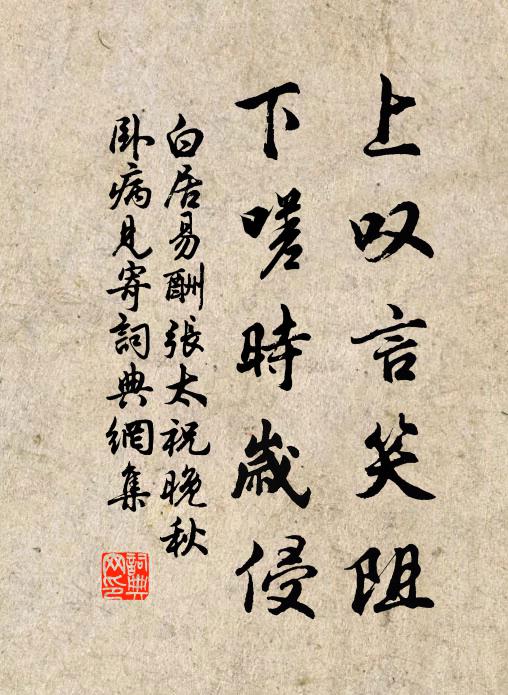 上叹言笑阻
下嗟時歲侵
白居易酬張太祝晚秋
卧病見寄詞典網集
詞典
网印